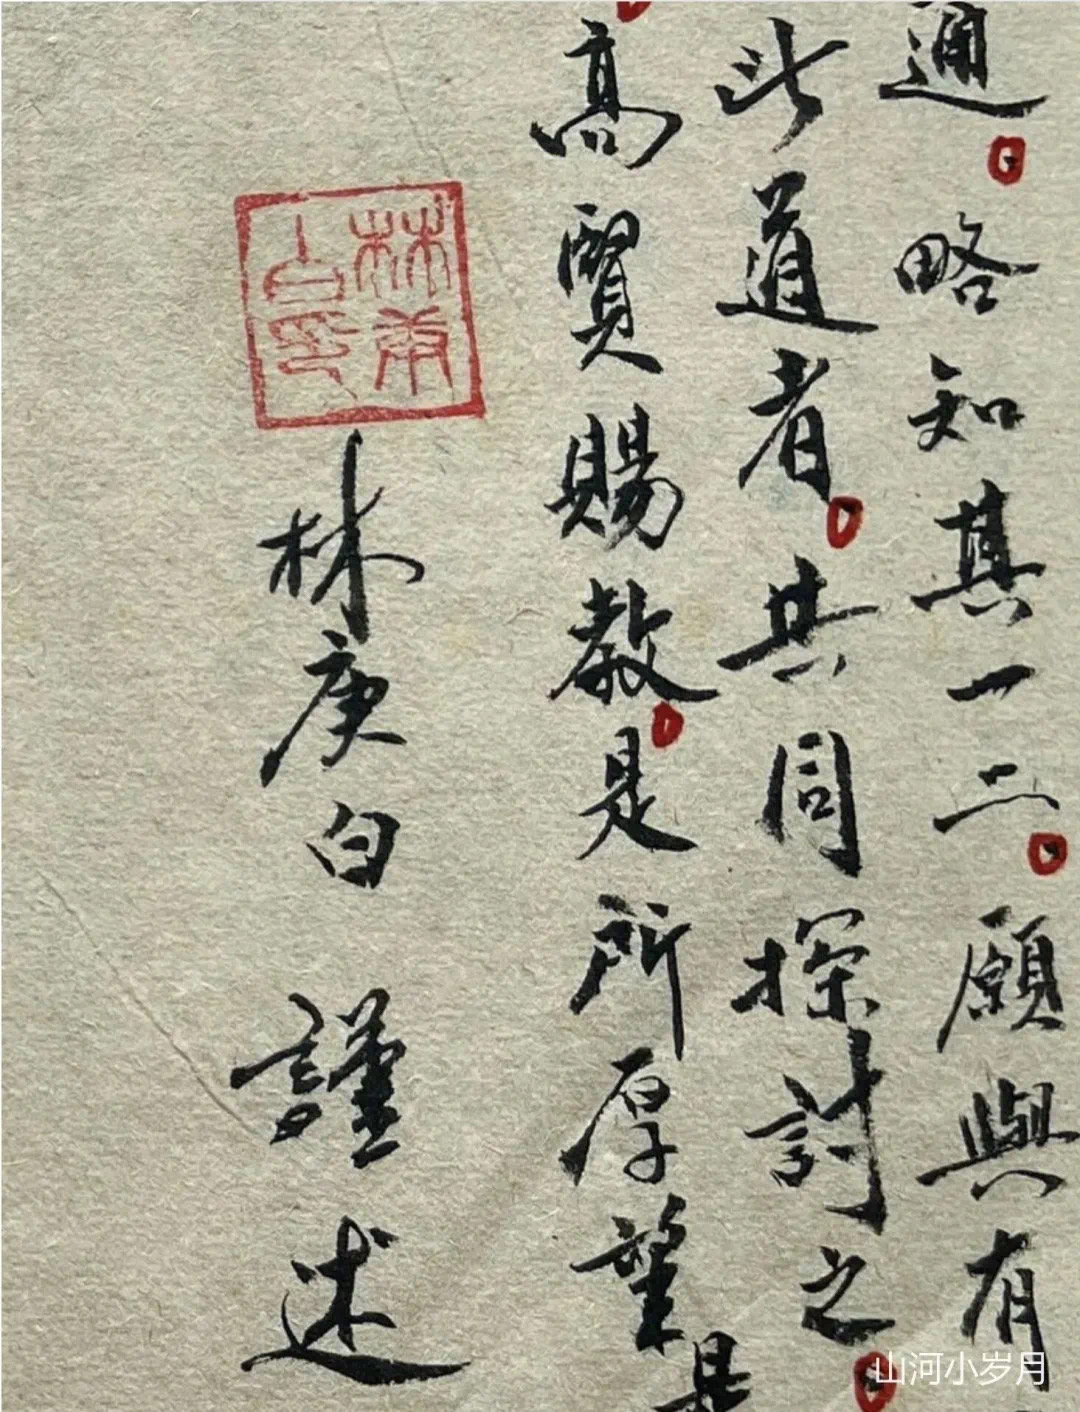 通。略知其一二。願與有
此道者。共同探討之。
高賢賜教。是所厚望
林庚白 謹述
林庚白印
山河小岁月